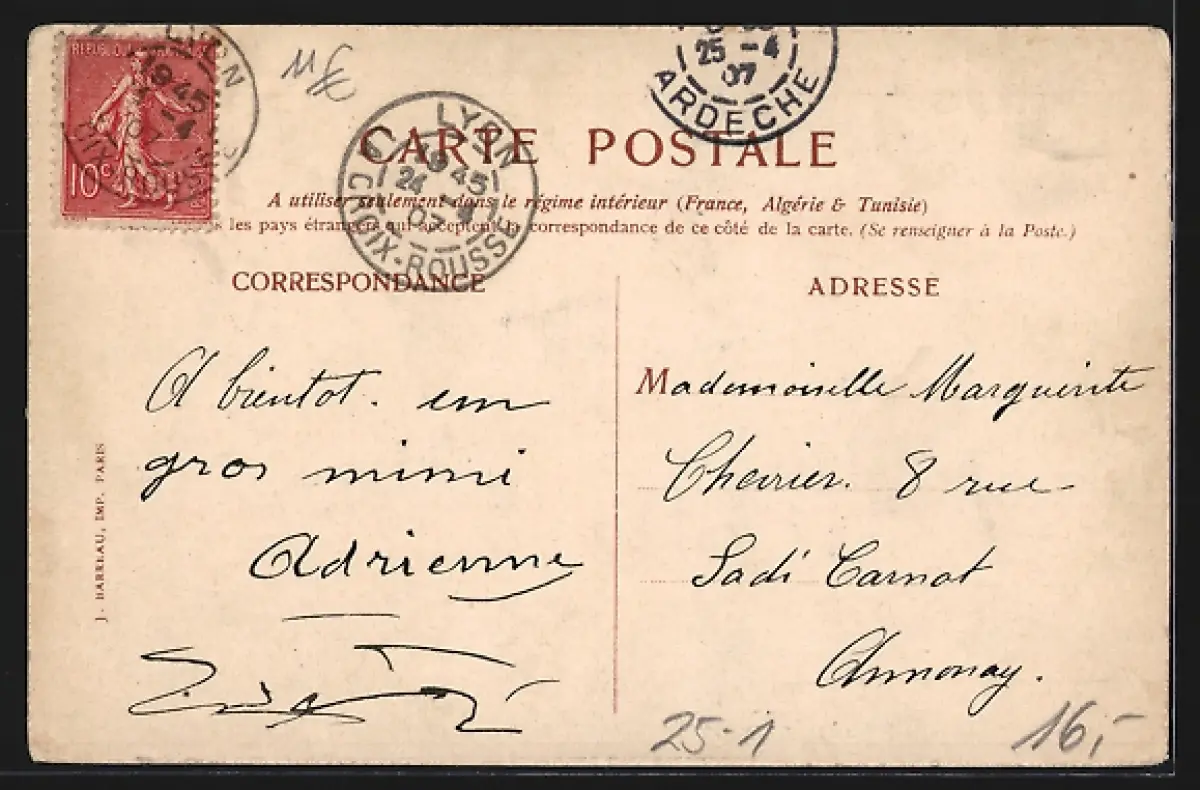 RÉPUBLIQUE FRANÇAISE
10c
LYON
1945
-4
LYON
1945
24 -4
07
LA CROIX-ROUSSE
25 -4
07
ARDECHE
CARTE POSTALE
A utiliser seulement dans le régime intérieur (France, Algérie & Tunisie)
les pays étrangers qui acceptent la correspondance de ce côté de la carte. (Se renseigner à la Poste.)
CORRESPONDANCE
ADRESSE
A bientot. un
gros mimi
Adrienne
Mademoiselle Marguerite
Chevrier. 8 rue
Sadi Carnot
Annonay.
J. BARREAU, IMP. PARIS
25-1
16,-